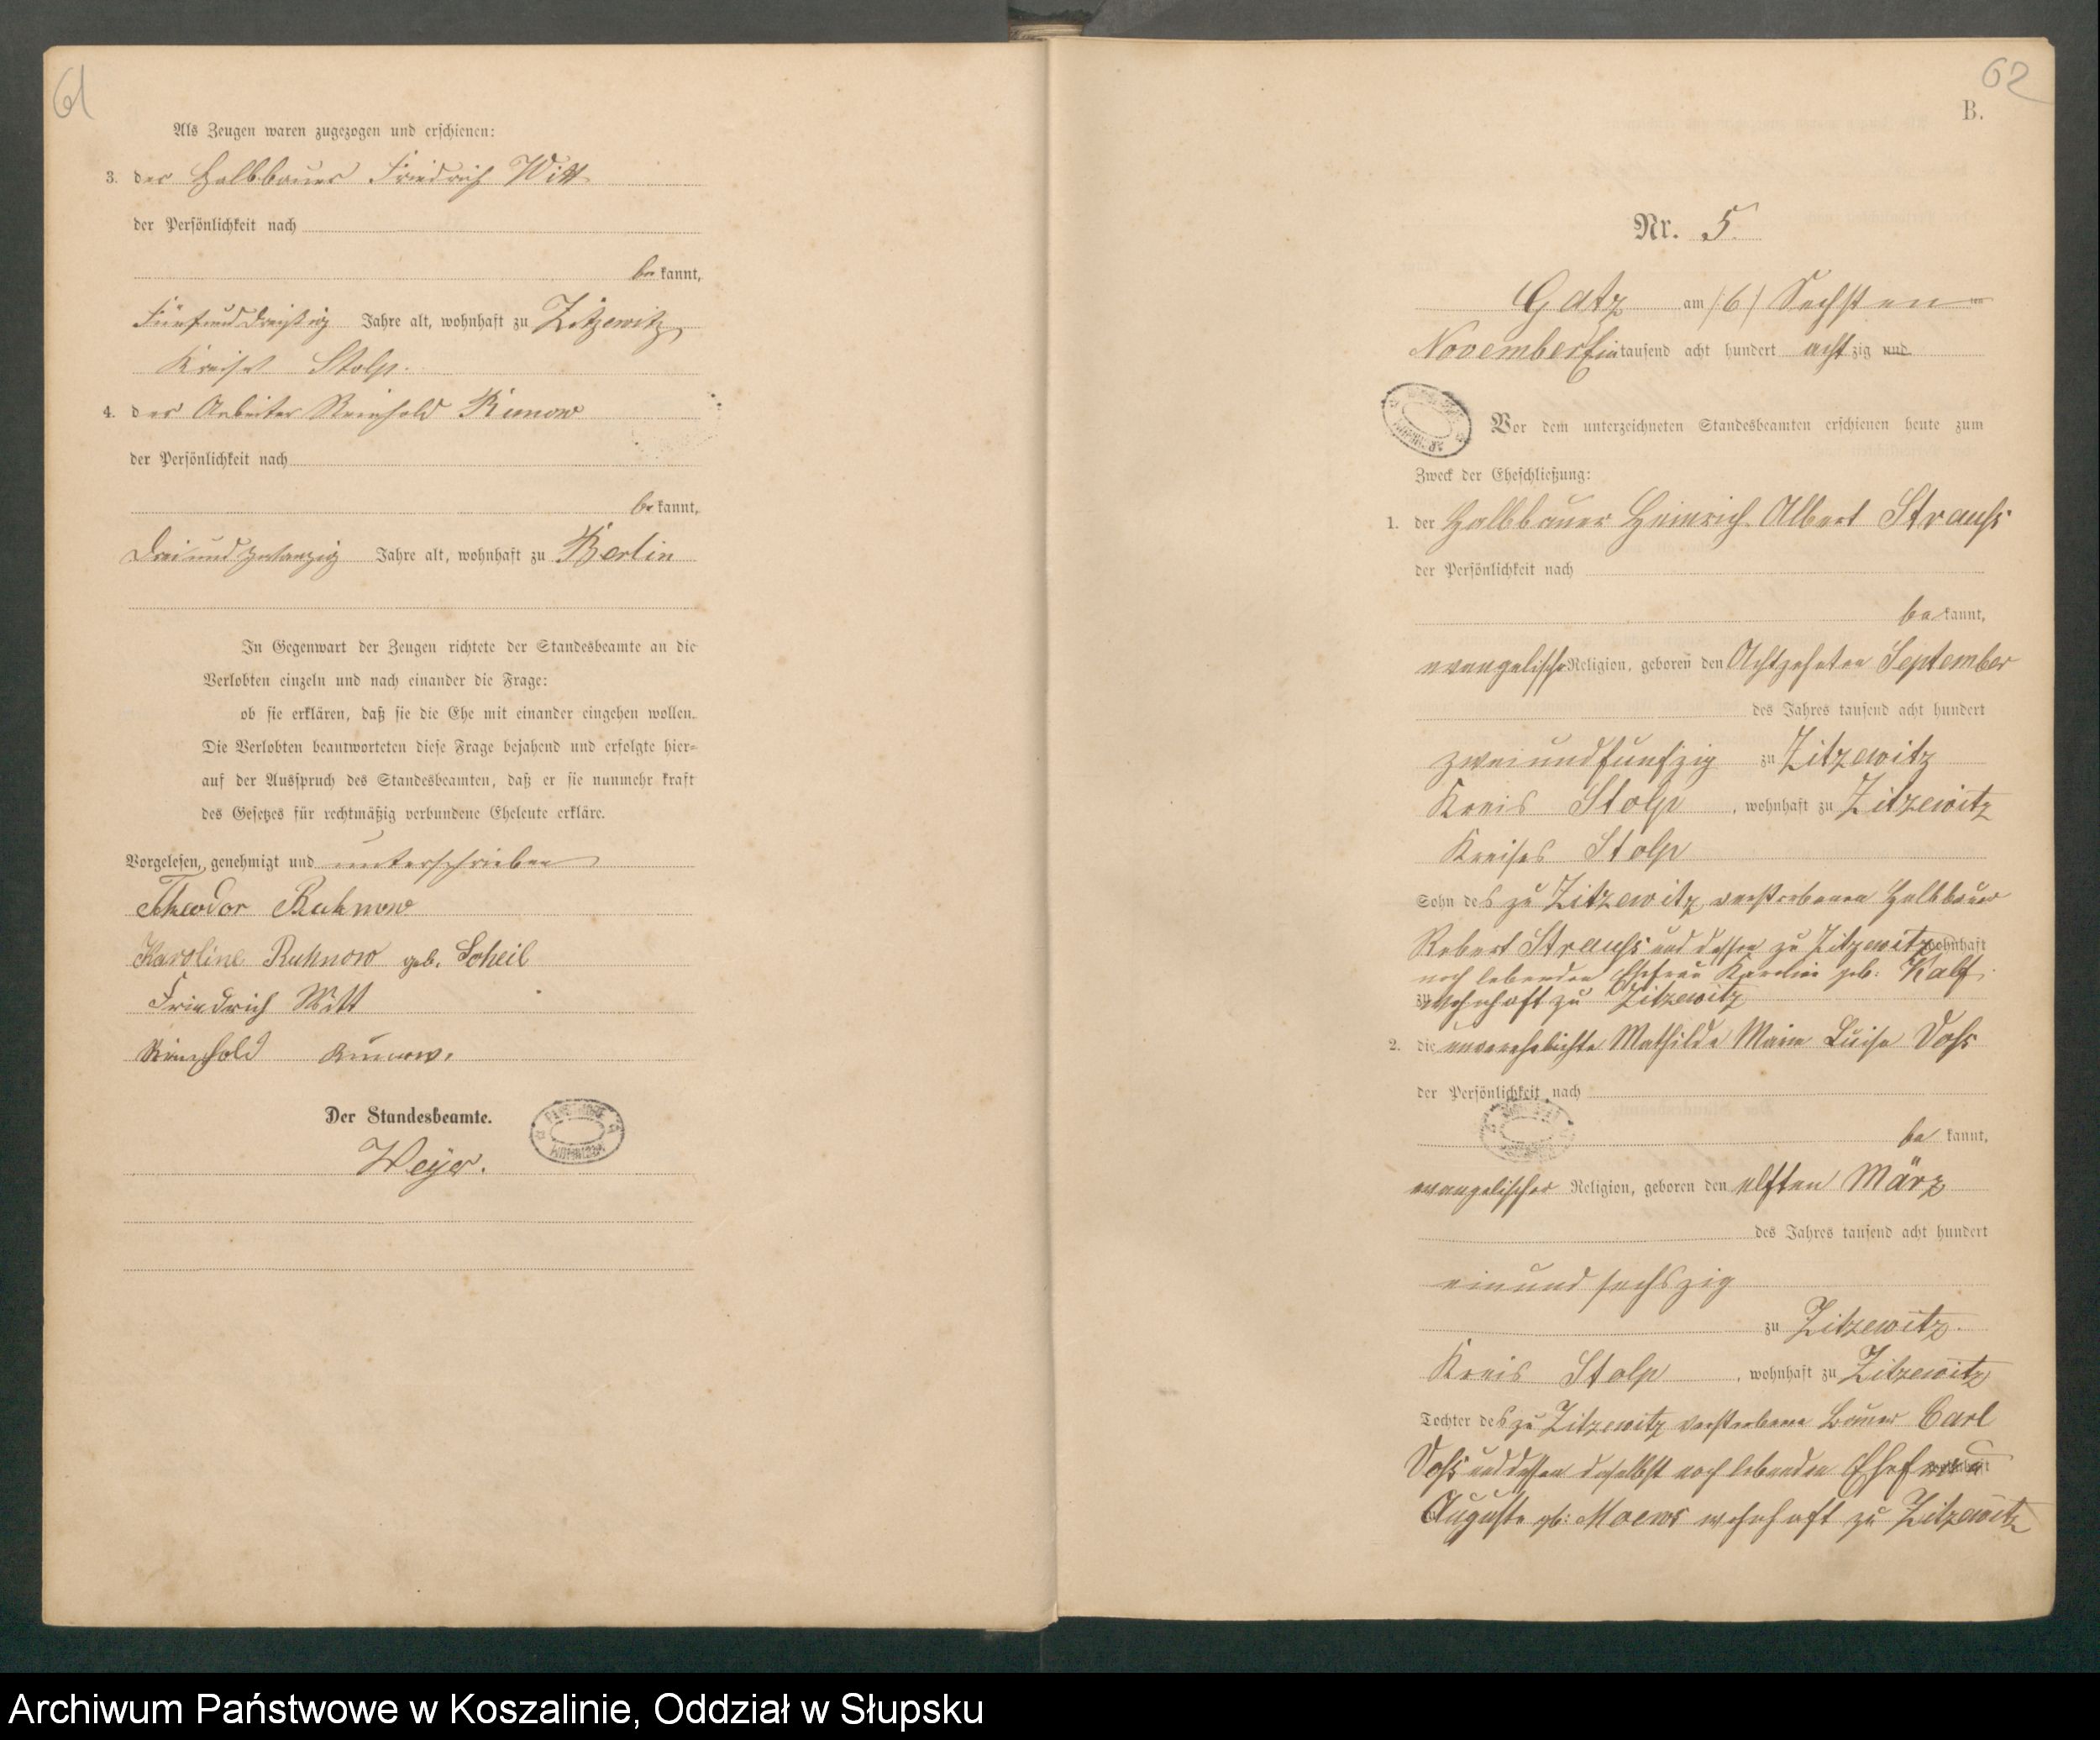 61
Als Zeugen waren zugezogen und erschienen:
3. der Halbbauer Friedrich Witt
der Persönlichkeit nach
be kannt,
Fünfunddreißig Jahre alt, wohnhaft zu Zitzewitz,
Kreises Stolp.
4. der Arbeiter Reinhold Kunow
der Persönlichkeit nach
be kannt,
Dreiundzwanzig Jahre alt, wohnhaft zu Berlin
In Gegenwart der Zeugen richtete der Standesbeamte an die
Verlobten einzeln und nach einander die Frage:
ob sie erklären, daß sie die Ehe mit einander eingehen wollen.
Die Verlobten beantworteten diese Frage bejahend und erfolgte hier=
auf der Ausspruch des Standesbeamten, daß er sie nunmehr kraft
des Gesetzes für rechtmäßig verbundene Eheleute erkläre.
Vorgelesen, genehmigt und unterschrieben
Theodor Ruhnow
Karoline Ruhnow geb. Scheil
Friedrich Witt
Reinhold Kunow.
Der Standesbeamte.
Weyer.
62
B.
Nr. 5.
Gatz am (6) Sechsten ten
November Ein tausend acht hundert acht zig und
Vor dem unterzeichneten Standesbeamten erschienen heute zum
Zweck der Eheschließung:
1. der Halbbauer Heinrich Albert Strauss
der Persönlichkeit nach
be kannt,
evangelische Religion, geboren den Achtzehnten September
des Jahres tausend acht hundert
zweiundfunfzig zu Zitzewitz
Kreis Stolp, wohnhaft zu Zitzewitz
Kreises Stolp
Sohn des zu Zitzewitz verstorbenen Halbbauer
Robert Strauss und dessen zu Zitzewitz wohnhaft
noch lebenden Ehefrau Karolin geb: Kalf
zu wohnhaft zu Zitzewitz
2. die unverehelichte Mathilde Marie Luise Voss
der Persönlichkeit nach
be kannt,
evangelischer Religion, geboren den elften März
des Jahres tausend acht hundert
einundsechszig
zu Zitzewitz.
Kreis Stolp, wohnhaft zu Zitzewitz
Tochter des zu Zitzewitz verstorbene Bauer Carl
Voss und dessen daselbst noch lebenden Ehefrau wohnhaft
Auguste geb: Moews wohnhaft zu Zitzewitz
Archiwum Państwowe w Koszalinie, Oddział w Słupsku